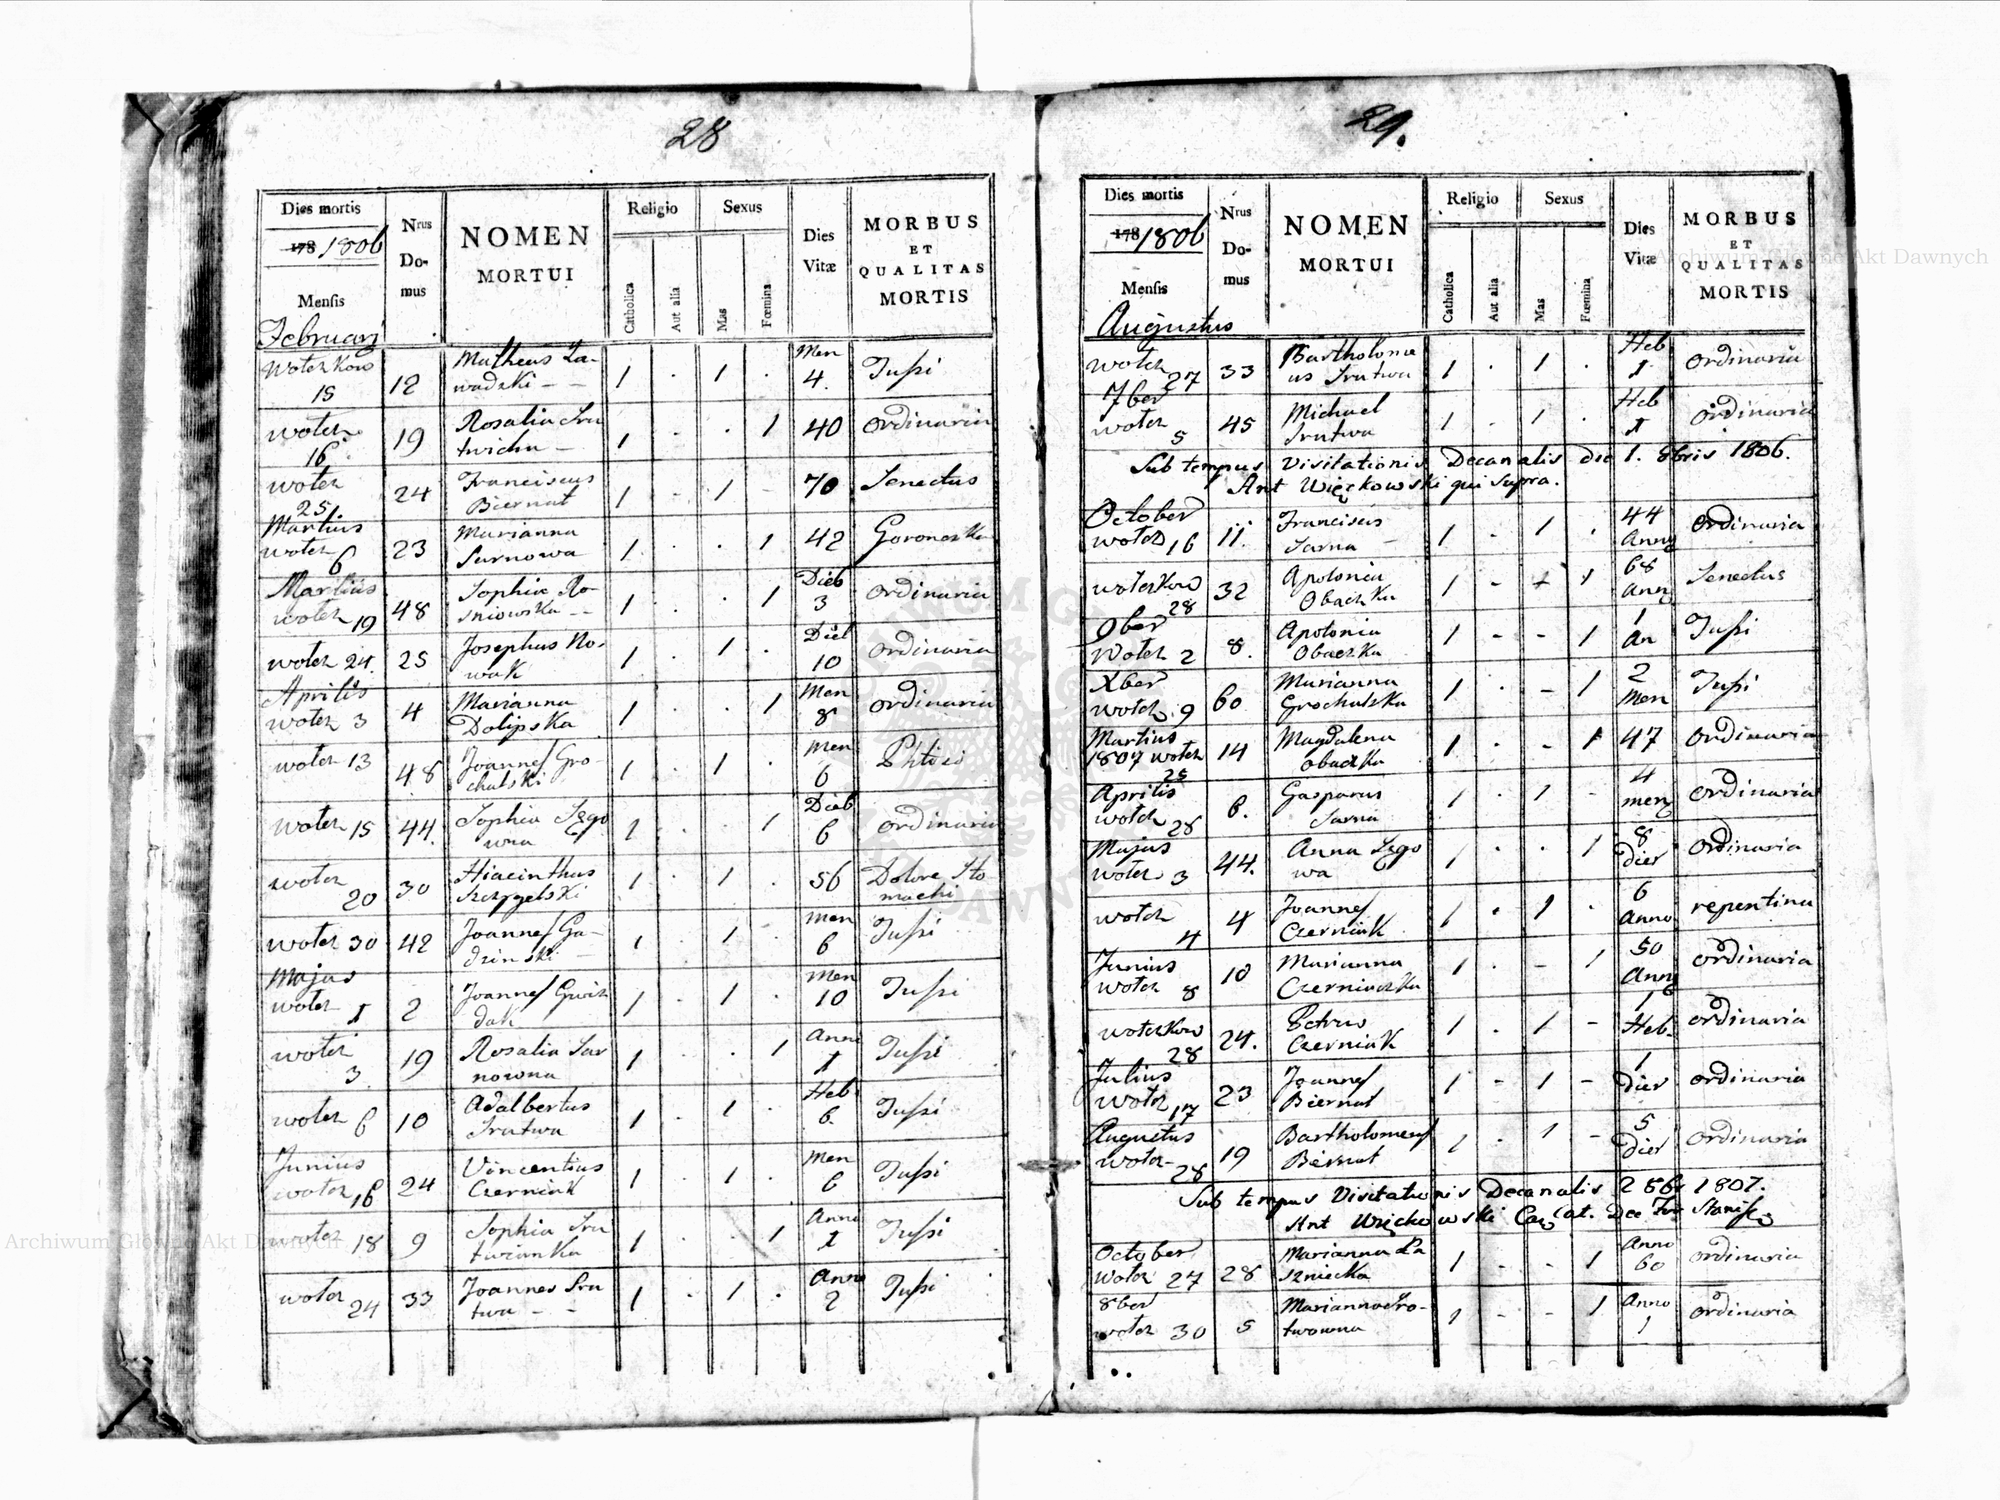 28
Dies mortis
178 1806
Mensis
Februarij
Nrus
Do-
mus
NOMEN
MORTUI
Religio
Catholica
Aut alia
Sexus
Mas
Fœmina
Dies
Vitæ
MORBUS
ET
QUALITAS
MORTIS
Woterkow 15 12 Matheus Za-
wadzki - - 1 . 1 . Men 4. Tussi
woter 16 19 Rosalia Sru
twicha - 1 . . 1 40 ordinaria
woter 25 24 Franciscus
Biernat 1 - 1 - 70 Senectus
Martius
woter 6 23 Marianna
Surnowa 1 . . 1 42 Goronczka
Martius
woter 19 48 Sophia Ro-
sniowska - - 1 . . 1 Dieb 3 ordinaria
woter 24 25 Josephus No-
wak 1 . 1 . Dieb 10 ordinaria
Aprilis
woter 3 4 Marianna
Dolipska 1 . . 1 Men 8 ordinaria
woter 13 48 Joannes Gro-
chulski 1 . 1 . Men 6 Phtisi
woter 15 44. Sophia Szgo
wna 1 . . 1 Dieb 6 ordinaria
woter 20 30 Hiacinthus
Szczygelski 1 . 1 . 56 Dolore Sto
machi
woter 30 42 Joannes Ga-
dzinski - 1 . 1 . Men 6 Tussi
Majus
woter 1 2 Joannes Gwiz
dak 1 . 1 . Men 10 Tussi
woter 3 19 Rosalia Sar
nowna 1 . . 1 Anni 1 Tussi
woter 6 10 Adalbertus
Srutwa 1 . 1 . Heb 6. Tussi
Junius
woter 16 24 Vincentius
Czerniak 1 . 1 . Men 6 Tussi
woter 18 9 Sophia Sru
twianka 1 . . 1 Anni 1 Tussi
woter 24 33 Joannes Sru
twa - - 1 . 1 . Anni 2 Tussi
29.
Dies mortis
178 1806
Mensis
Augustus
Nrus
Do-
mus
NOMEN
MORTUI
Religio
Catholica
Aut alia
Sexus
Mas
Fœmina
Dies
Vitæ
MORBUS
ET
QUALITAS
MORTIS
woter 27 33 Bartholome
us Srutwa 1 . 1 . Heb 1 ordinaria
7ber
woter 5 45 Michael
Srutwa 1 . 1 . Heb 1 ordinaria
Sub tempus Visitationis Decanalis die 1. 8bris 1806.
Ant Więckowski qui supra.
October
woter 16 11. Franciscus
Sarna - 1 . 1 . 44 Anny ordinaria
woterkow 28 32 Apolonia
Obaczka 1 - + 1 68 Anny Senectus
9ber
Woter 2 8. Apolonia
Obaczka 1 - - 1 1 An Tussi
Xber
woter 9 60 Marianna
Grochulska 1 . - 1 2 Men Tussi
Martius
1807 woter 25 14 Magdalena
Obaczka 1 . - 1 47 ordinaria
Aprilis
woter 28 6. Gasparus
Sarna 1 . 1 - 4 men ordinaria
Majus
woter 3 44. Anna Szgo
wa 1 . . 1 8 dier ordinaria
woter 4 4 Joannes
Czerniak 1 . 1 . 6 Anno repentina
Junius
woter 8 10 Marianna
Czerniaczka 1 . - 1 50 Anny ordinaria
woterkow 28 24. Petrus
Czerniak 1 . 1 - 1 Heb. ordinaria
Julius
woter 17 23 Joannes
Biernat 1 - 1 - 1 dier ordinaria
Augustus
woter 28 19 Bartholomeus
Biernat 1 . 1 - 5 dier ordinaria
Sub tempus Visitationis Decanalis 2 8br 1807.
Ant Więckowski
October
woter 27 28 Marianna La
szniecka 1 . - 1 Anno 60 ordinaria
8ber
woter 30 5 Marianna Sro-
twowna 1 - - 1 Anno 1 ordinaria
Archiwum Główne Akt Dawnych
Archiwum Główne Akt Dawnych